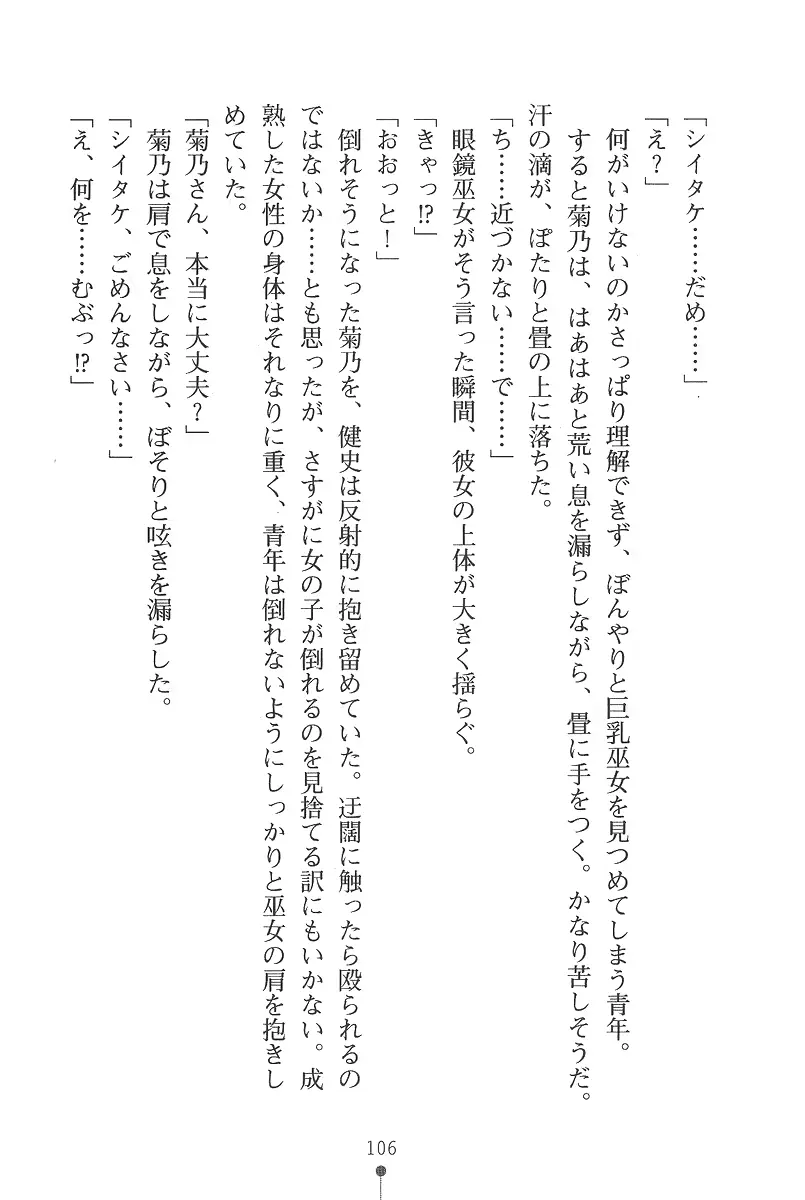 「シイタケ……だめ……」
「え？」
　何がいけないのかさっぱり理解できず、ぼんやりと巨乳巫女を見つめてしまう青年。
　すると菊乃は、はあはあと荒い息を漏らしながら、畳に手をつく。かなり苦しそうだ。
汗の滴が、ぽたりと畳の上に落ちた。
「ち……近づかない……で……」
　眼鏡巫女がそう言った瞬間、彼女の上体が大きく揺らぐ。
「きゃっ!?」
「おおっと！」
　倒れそうになった菊乃を、健史は反射的に抱き留めていた。迂闊に触ったら殴られるの
ではないか……とも思ったが、さすがに女の子が倒れるのを見捨てる訳にもいかない。成
熟した女性の身体はそれなりに重く、青年は倒れないようにしっかりと巫女の肩を抱きし
めていた。
「菊乃さん、本当に大丈夫？」
　菊乃は肩で息をしながら、ぼそりと呟きを漏らした。
「シイタケ、ごめんなさい……」
「え、何を……むぶっ!?」
106